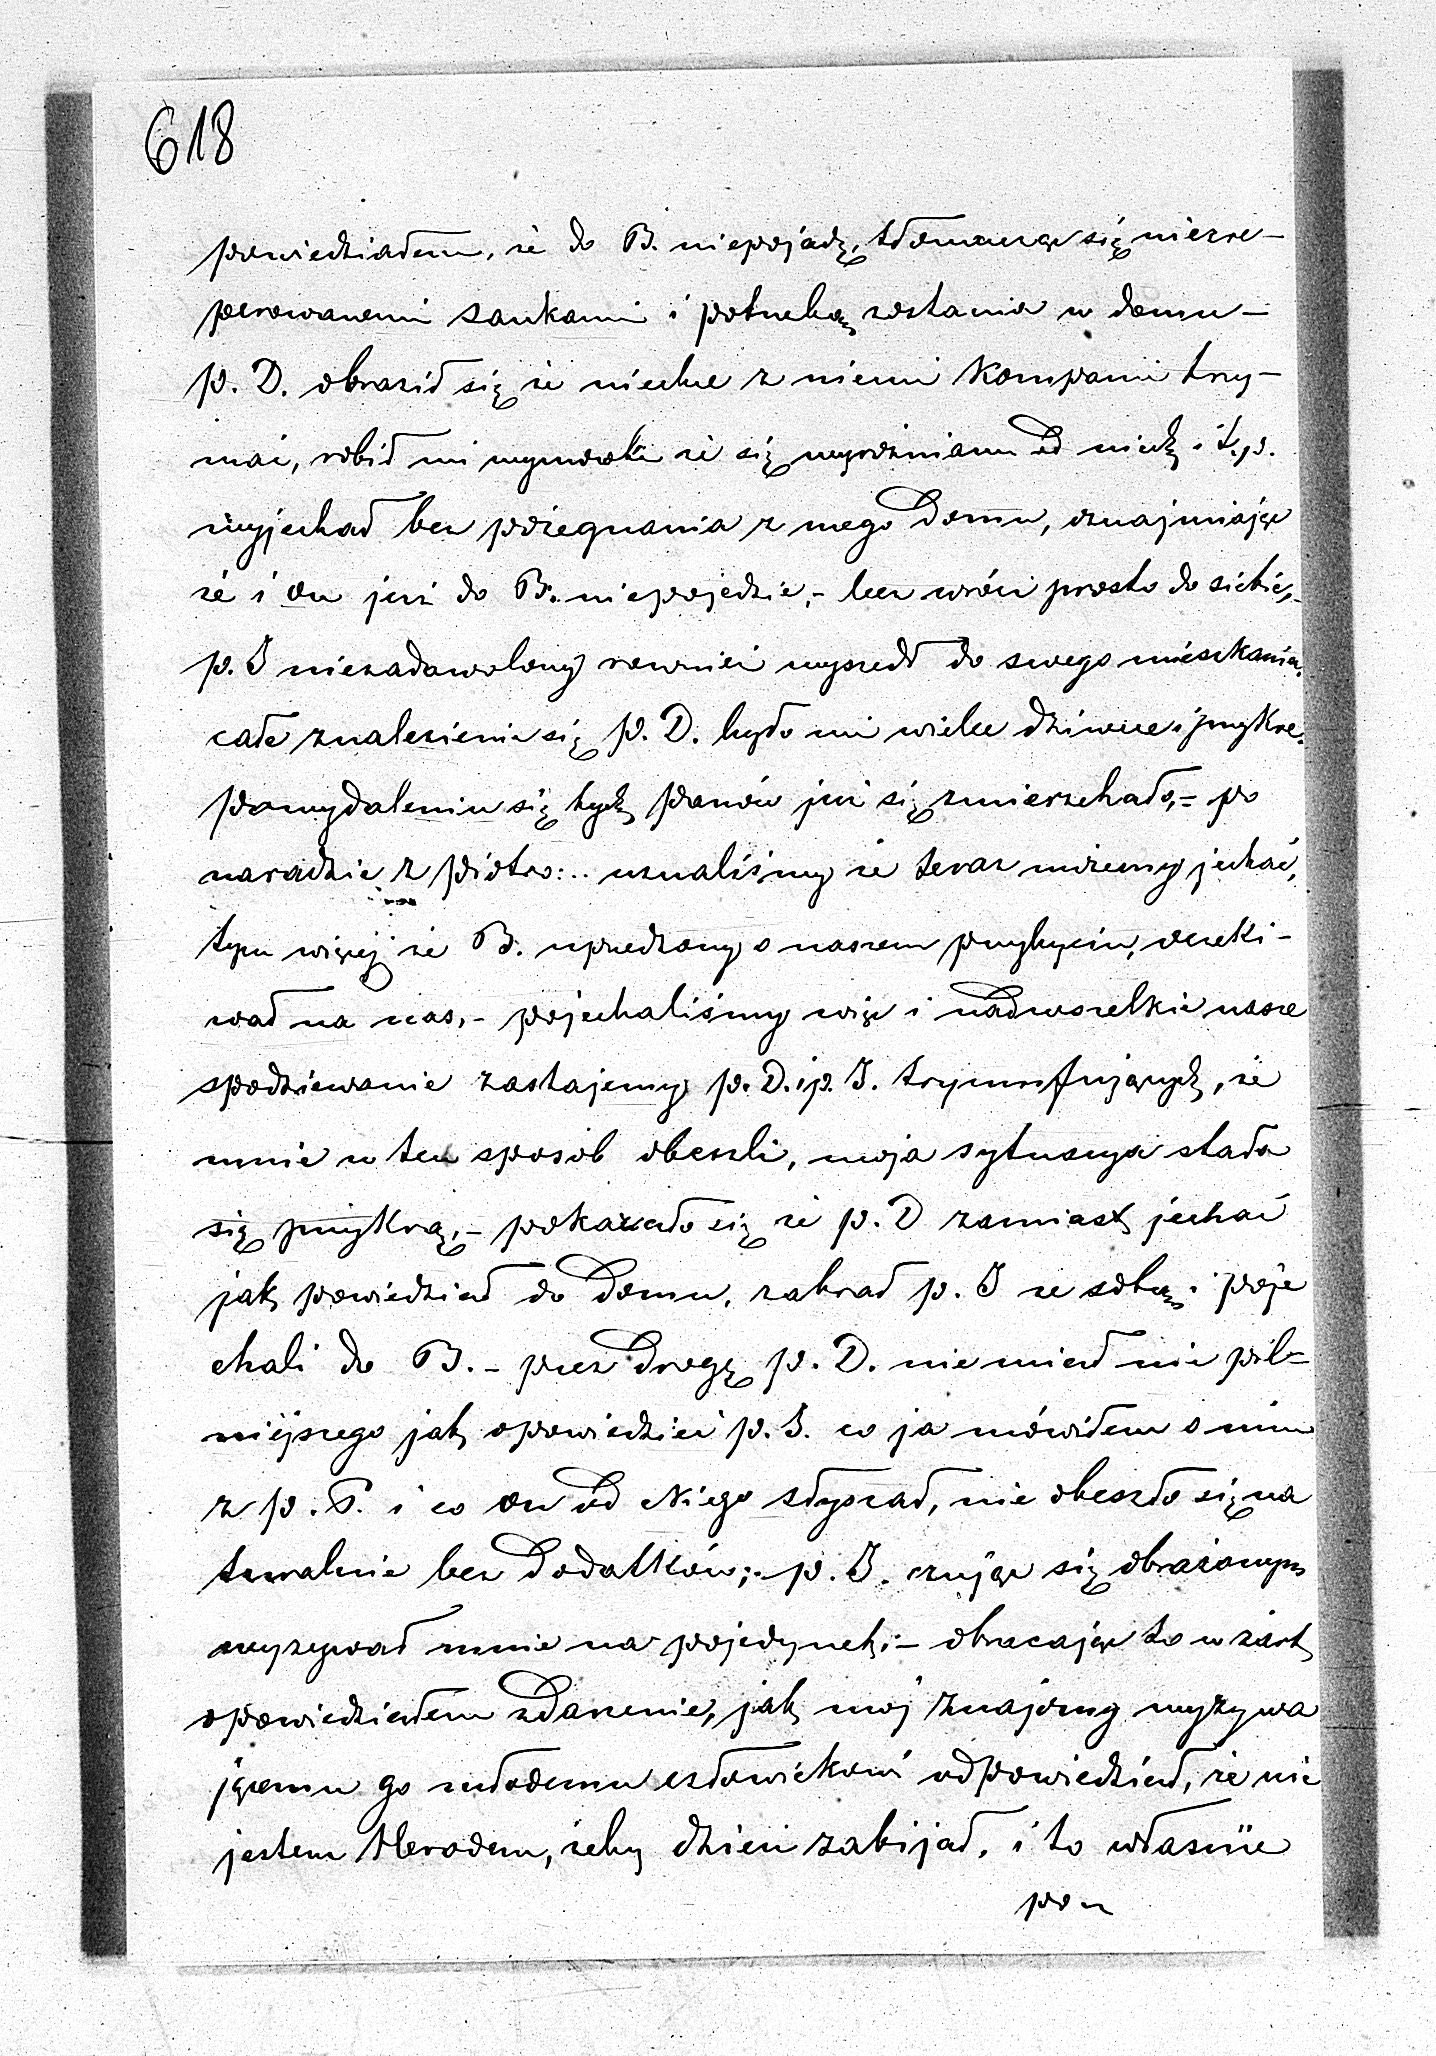 618
powiedziałem, że do B. niepojadę, tłomacząc się niezre-
perowanemi sankami i potrzebą zostania w domu –
p. D. obraził się że niechce z niemi kompanii trzy-
mać, robił mi wymówki że się wyróżniam od nich i t.p.
wyjechał bez pożegnania z mego domu, oznajmiając
że i on już do B. niepojedzie, – lecz wróci prosto do siebie, –
p. J niezadowolony rownież wyszedł do swego mieszkania,
całe znalezienie się p. D. było mi wielce dziwne i przykre.
po wydaleniu się tych panów już się zmierzchało, – po
naradzie z Piotro:.. uznaliśmy że teraz możemy jechać,
tym więcej że B. uprzedzony o naszem przybyciu, oczeki-
wał na nas, – pojechaliśmy więc i nadwszelkie nasze
spodziewanie zastajemy p. D. i p. J. tryumfujących, że
mnie w ten sposób obeszli, moja sytuacya stała
się przykrą, – pokazało się że p. D zamiast jechać
jak powiedział do domu, zabrał p. J ze sobą i poje
chali do B. – przez drogę p. D. nie miał nic pil-
niejszego jak opowiedzieć p. J. co ja mówiłem o nim
z p. P. i co on od Niego słyszał, nie obeszło się na
turalnie bez dodatków; p. J. czując się obrażonym
wyzywał mnie na pojedynek; – obracając to w żart
opowiedziałem zdarzenie, jak mój znajomy wyzywa
jącemu go młodemu człowiekowi odpowiedział, że nie
jestem Herodem, żeby dzieci zabijał, i to właśnie
po